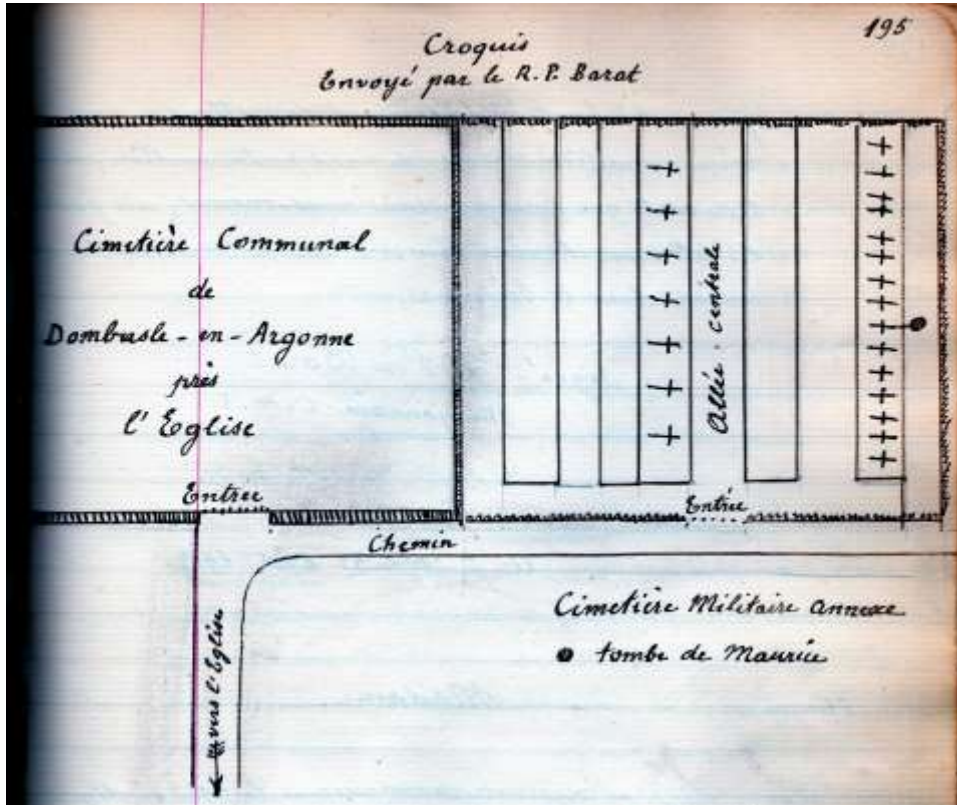 195
Croquis
Envoyé par le R.P. Barat
Cimetière Communal
de
Dombasle-en-Argonne
près
l'Eglise
Entrée
Allée centrale
Entrée
Chemin
vers l'Eglise
Cimetière Militaire annexe
tombe de Maurice